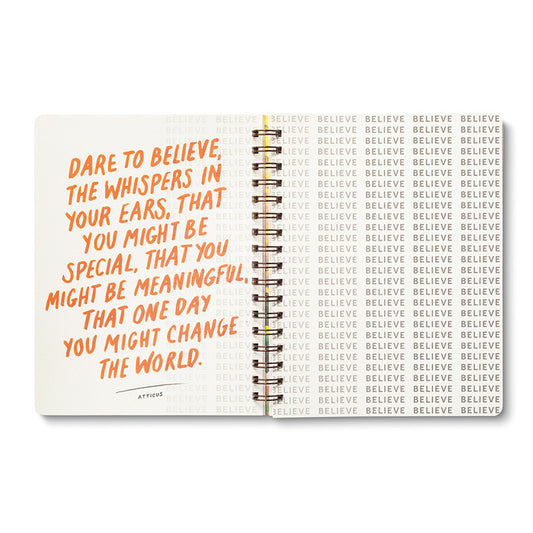 DARE TO BELIEVE,
THE WHISPERS IN
YOUR EARS, THAT
YOU MIGHT BE
SPECIAL, THAT YOU
MIGHT BE MEANINGFUL,
THAT ONE DAY
YOU MIGHT CHANGE
THE WORLD.
ATTICUS
BELIEVE BELIEVE BELIEVE BELIEVE BELIEVE BELIEVE BELIEVE
BELIEVE BELIEVE BELIEVE BELIEVE BELIEVE
BELIEVE BELIEVE BELIEVE BELIEVE BELIEVE
BELIEVE BELIEVE BELIEVE BELIEVE BELIEVE
BELIEVE BELIEVE BELIEVE BELIEVE BELIEVE
BELIEVE BELIEVE BELIEVE BELIEVE BELIEVE
BELIEVE BELIEVE BELIEVE BELIEVE BELIEVE
BELIEVE BELIEVE BELIEVE BELIEVE BELIEVE
BELIEVE BELIEVE BELIEVE BELIEVE BELIEVE
BELIEVE BELIEVE BELIEVE BELIEVE BELIEVE
BELIEVE BELIEVE BELIEVE BELIEVE BELIEVE
BELIEVE BELIEVE BELIEVE BELIEVE BELIEVE
BELIEVE BELIEVE BELIEVE BELIEVE BELIEVE
BELIEVE BELIEVE BELIEVE BELIEVE BELIEVE
BELIEVE BELIEVE BELIEVE BELIEVE BELIEVE
BELIEVE BELIEVE BELIEVE BELIEVE BELIEVE
BELIEVE BELIEVE BELIEVE BELIEVE BELIEVE
BELIEVE BELIEVE BELIEVE BELIEVE BELIEVE
BELIEVE BELIEVE BELIEVE BELIEVE BELIEVE
BELIEVE BELIEVE BELIEVE BELIEVE BELIEVE
BELIEVE BELIEVE BELIEVE BELIEVE BELIEVE
BELIEVE BELIEVE BELIEVE BELIEVE BELIEVE
BELIEVE BELIEVE BELIEVE BELIEVE BELIEVE
BELIEVE BELIEVE BELIEVE BELIEVE BELIEVE
BELIEVE BELIEVE BELIEVE BELIEVE BELIEVE